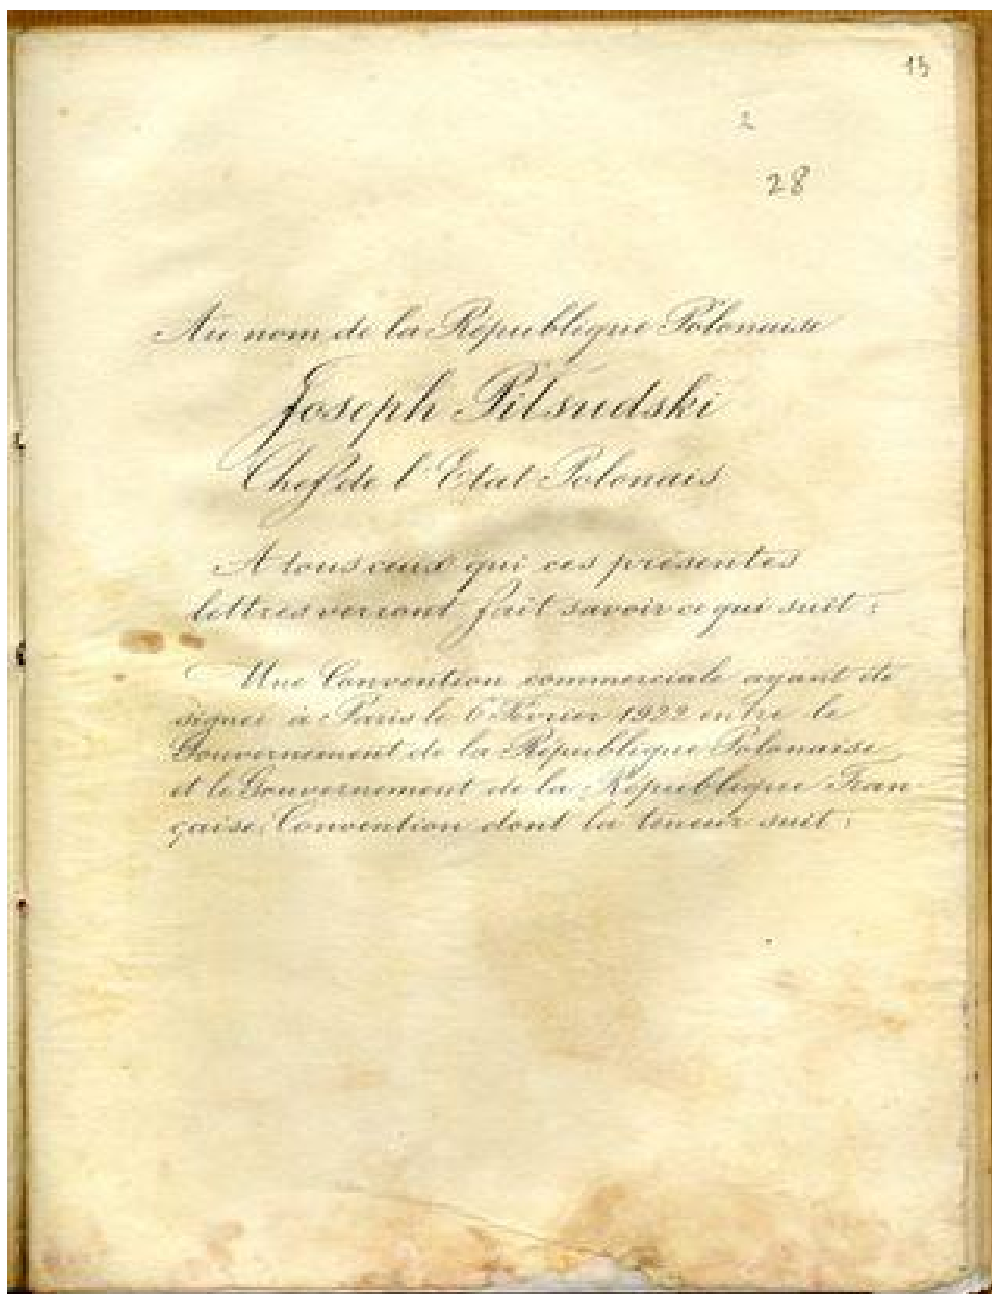 15
2
28
Au nom de la République Polonaise
Joseph Pilsudski
Chef de l'Etat Polonais
A tous ceux qui ces présentes
lettres verront fait savoir ce qui suit :
Une Convention commerciale ayant été
signée à Paris le 6 Février 1922 entre le
Gouvernement de la République Polonaise
et le Gouvernement de la République Fran-
çaise, Convention dont la teneur suit :